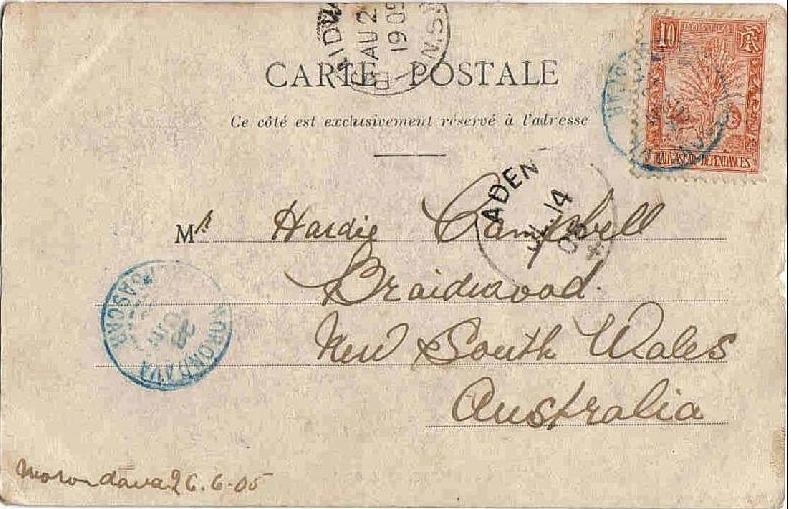 BRAIDWOOD
AU 2
1905
N.S.W
CARTE POSTALE
Ce côté est exclusivement réservé à l'adresse
10
RF
MADAGASCAR ET DÉPENDANCES
ADEN
JUL 14
05
Mr Hardie Campbell
Braidwood.
New South Wales
Australia
MORONDAVA
MADAGASCAR
Morondava 26.6-05